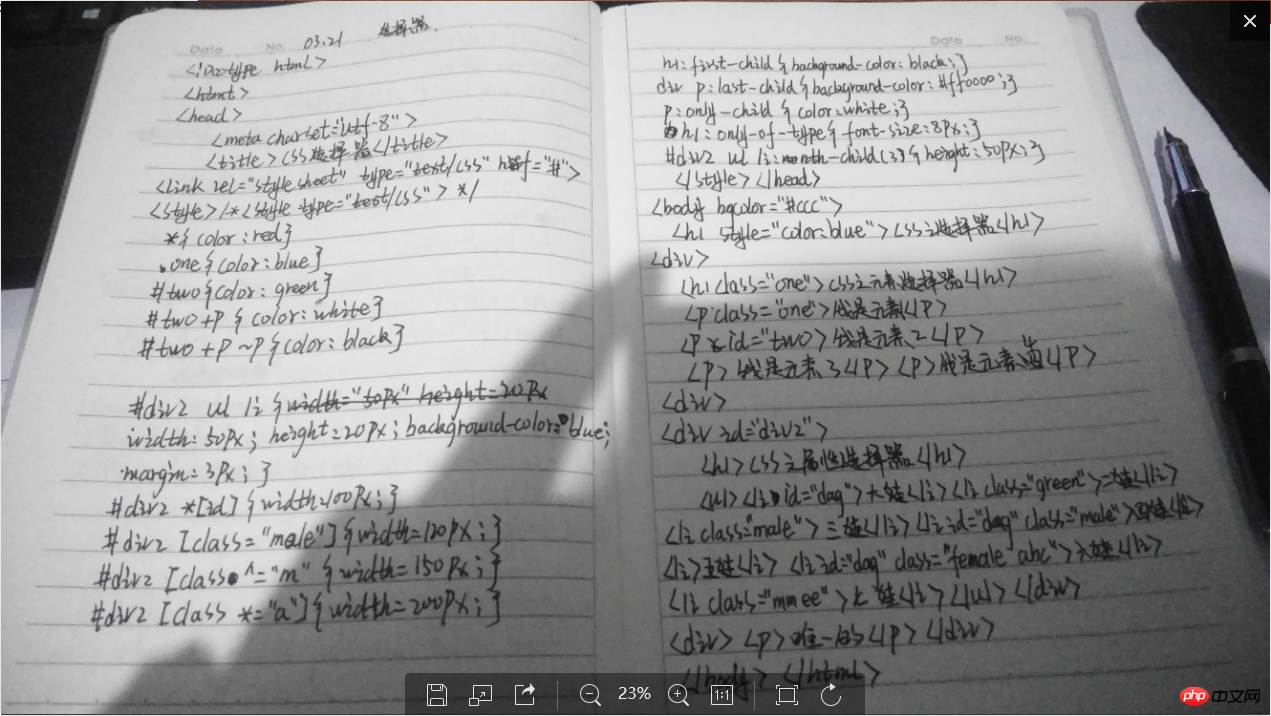 Date No. 03.21 选择器.
<!Doctype html>
<html>
<head>
<meta charset="utf-8">
<title>CSS选择器</title>
<link rel="style sheet" type="text/css" href="#">
<style>/*<style type="text/css"> */
*{color:red}
.one{color:blue}
#two{color:green}
#two+P {color:white}
#two +P ~P{color:black}
#div2 ul li {width="50px" height=20px
width:50px; height=20px; background-color: blue;
margin=3px; }
#div2 *[id] {width=100px;}
#div2 [class="male"]{width=120px;}
#div2 [class ^="m" {width=150px;}
#div2 [class *="a"]{width=200px;}
Date No.
h1:first-child {background-color:black;}
div p:last-child{background-color:#ff0000;}
p:only-child {color:white;}
h1:only-of-type{font-size:8px;}
#div2 ul li:nth-child(3){height:50px;}
</style></head>
<body bgcolor="#ccc">
<h1 style="color:blue">CSS之选择器</h1>
<div>
<h1 class="one">CSS之元素选择器</h1>
<p class="one">我是元素1</P>
<P id="two">我是元素2</P>
<P>我是元素3</P> <P>我是元素4</P>
<div>
<div id="div2">
<h1>CSS之属性选择器</h1>
<ul><li id="dag">大娃</li><li class="green">二娃</li>
<li class="male">三娃</li><li id="dag" class="male">四娃</li>
<li>五娃</li> <li id="dag" class="female abc">六娃</li>
<li class="mmee">七娃</li></ul></div>
<div> <p>唯一的</p></div>
</body> </html>
23%
1:1
php 中文网